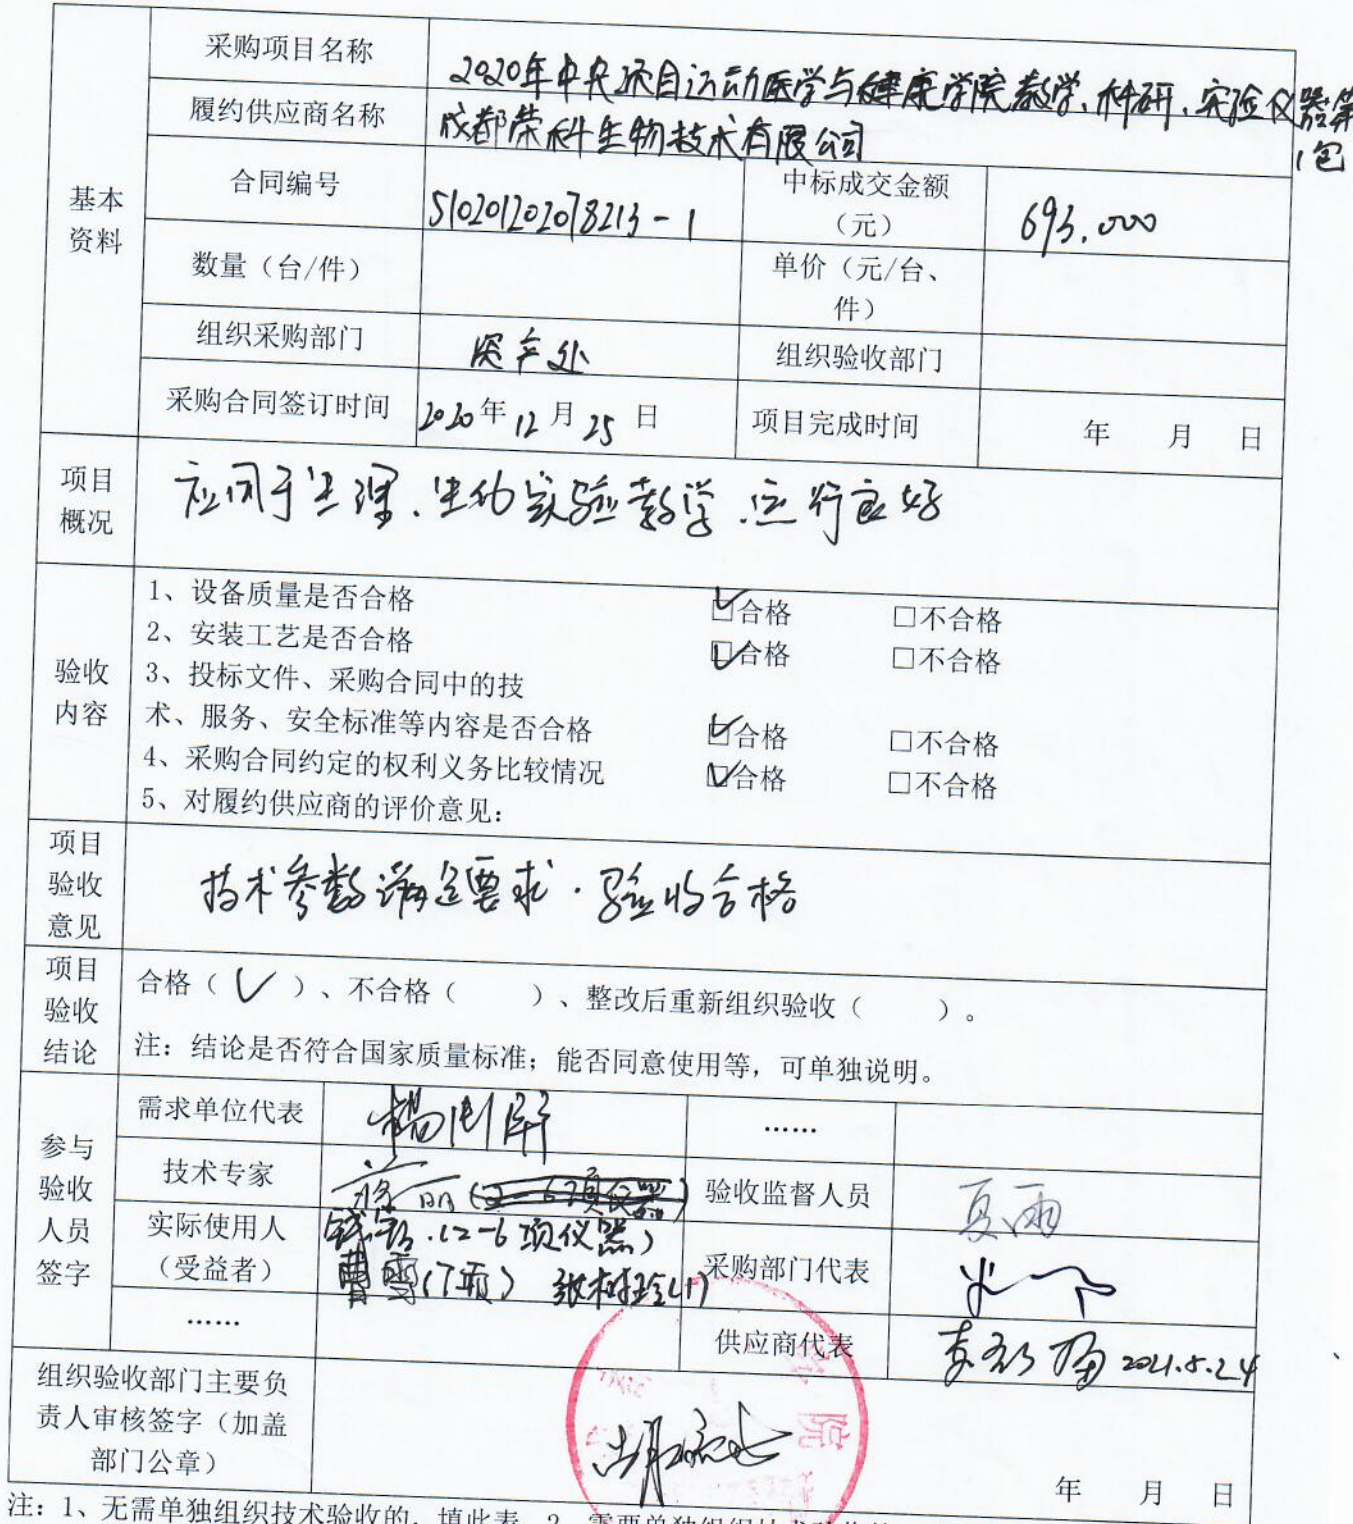 采购项目名称 2020年中央项目运动医学与健康学院教学、科研、实验仪器第1包
履约供应商名称 成都荣科生物技术有限公司
基本资料
合同编号 510201202078213-1 中标成交金额（元） 693,000
数量（台/件） 单价（元/台、件）
组织采购部门 国资处 组织验收部门
采购合同签订时间 2020年12月25日 项目完成时间 年 月 日
项目概况
应用于生理、生化实验教学,运行良好
验收内容
1、设备质量是否合格 ☑合格 □不合格
2、安装工艺是否合格 ☑合格 □不合格
3、投标文件、采购合同中的技
术、服务、安全标准等内容是否合格 ☑合格 □不合格
4、采购合同约定的权利义务比较情况 ☑合格 □不合格
5、对履约供应商的评价意见：
项目验收意见
技术参数满足要求.验收合格
项目验收结论
合格（√）、不合格（ ）、整改后重新组织验收（ ）。
注：结论是否符合国家质量标准；能否同意使用等，可单独说明。
参与验收人员签字
需求单位代表 ……
技术专家 验收监督人员 夏雨
实际使用人（受益者） (2-6项仪器) 采购部门代表
曹雪(7项)
…… 供应商代表 2021.5.24
组织验收部门主要负责人审核签字（加盖部门公章）
院
年 月 日
注：1、无需单独组织技术验收的，填此表。2、需要单独组织技术验收